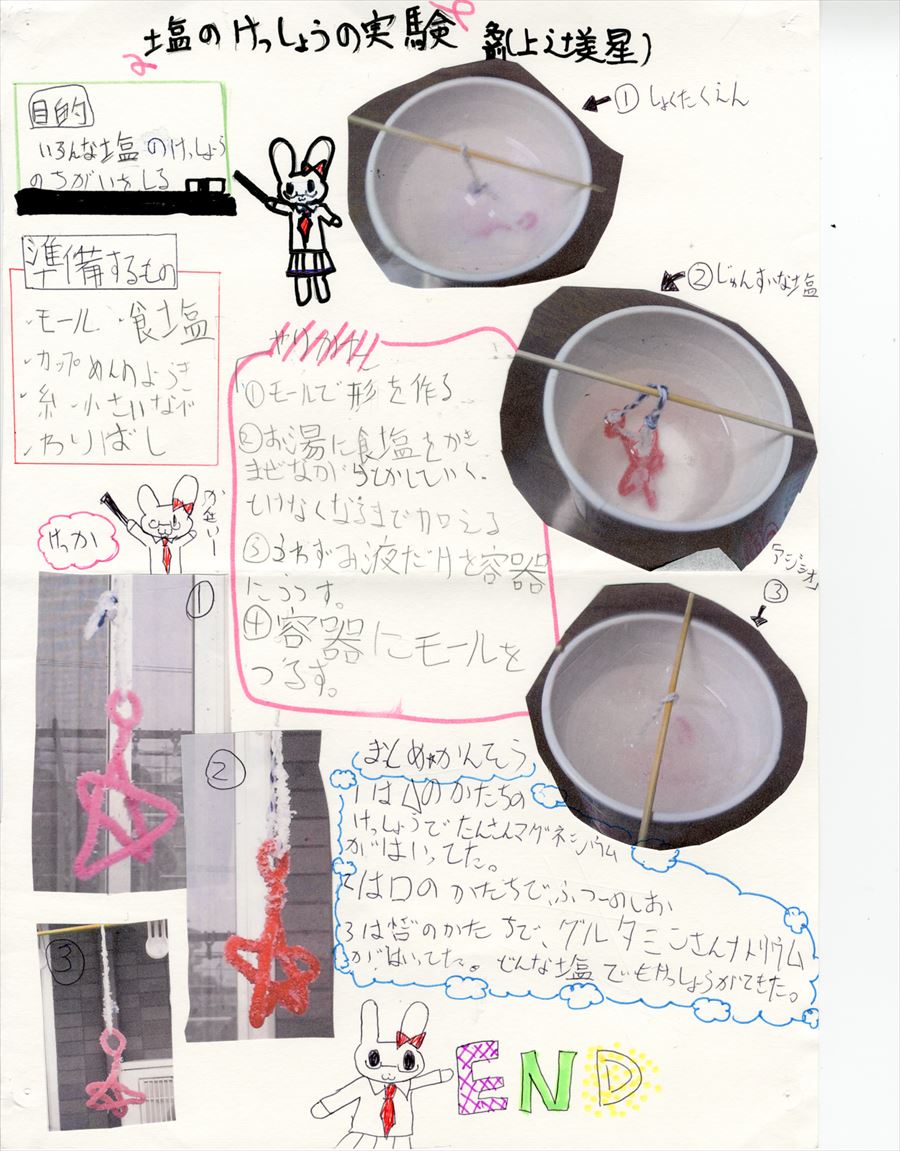 塩のけっしょうの実験
上辻美星)
目的
いろんな塩のけっしょう
のちがいをしる
① しょくたくえん
② じゅんすいな塩
準備するもの
・モール ・食塩
・カップめんのようき
・糸 ・小さいなべ
・わりばし
やりかた
①モールで形を作る
②お湯に食塩をかき
まぜながらとかしていく。
とけなくなるまで加える
③うわずみ液だけを容器
にうつす。
④容器にモールを
つるす。
けっか
アジシオ
③
①
②
③
まとめ★かんそう
1は△のかたちの
けっしょうでたんさんマグネシウム
がはいってた。
2は口のかたちで、ふつーのしお
3は のかたちで、グルタミンさんナトリウム
がはいてた。どんな塩でもけっしょうができた。
END